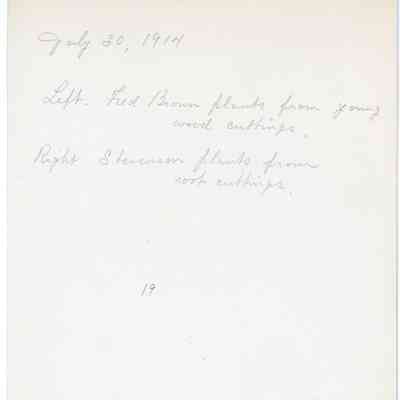 July 30, 1914
Left. Fred Brown plants from young
wood cuttings.
Right Stevenson plants from
root cuttings.
19